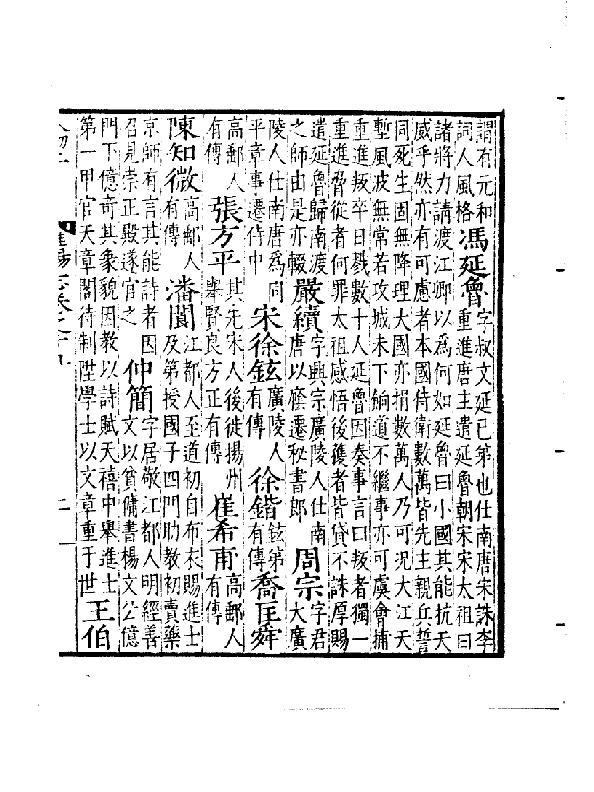 謂有元和
詞人風格
馮延魯
字叔文延已第也仕南唐宋誅李
重進唐主遣延魯朝宋宋太祖曰
諸將力請渡江卿以為何如延魯曰小國其能抗天
威乎然亦有可慮者本國侍衛數萬皆先主親兵誓
同死生固無降理大國亦捐數萬人乃可况大江天
塹風波無常若攻城未下餉道不繼事亦可虞會捕
重進叛卒日戮數十人延魯因奏事言曰叛者獨一
重進脅從者何罪太祖感悟後獲者皆貸不誅厚賜
遣延魯歸南渡
之師由是亦輟
嚴續
字興宗廣陵人仕南
唐以廕遷秘書郎
周宗
字君
大廣
陵人仕南唐為同
平章事遷侍中
宋徐鉉
廣陵人
有傳
徐鍇
鉉第
有傳
喬匡舜
高郵人
有傳
張方平
其先宋人後徙揚州
舉賢良方正有傳
崔希甫
高郵人
有傳
陳知微
高郵人
有傳
潘閬
江都人至道初自布衣賜進士
及第授國子四門助教初賣藥
京師有言其能詩者因
召見崇正殿遂官之
仲簡
字居敬江都人明經善
文以貧傭書楊文公億
門下億奇其象貌因教以詩賦天禧中舉進士
第一甲官天章閣待制陞學士以文章重于世
王伯